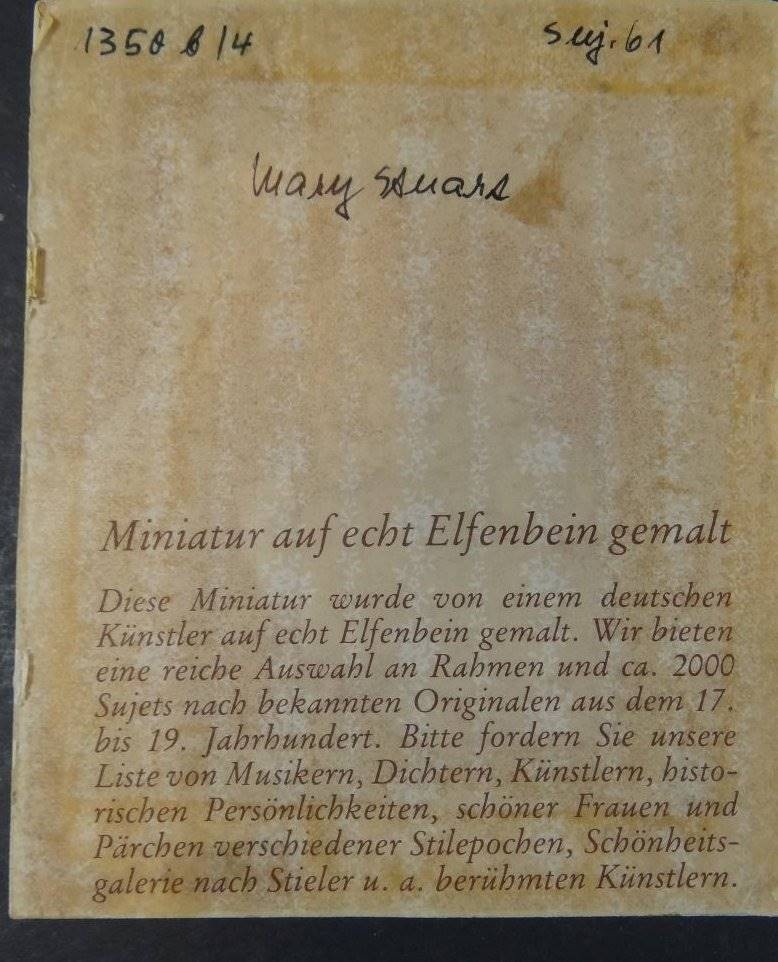 1350 b/4
Suj. 61
Mary Stuart
Miniatur auf echt Elfenbein gemalt
Diese Miniatur wurde von einem deutschen
Künstler auf echt Elfenbein gemalt. Wir bieten
eine reiche Auswahl an Rahmen und ca. 2000
Sujets nach bekannten Originalen aus dem 17.
bis 19. Jahrhundert. Bitte fordern Sie unsere
Liste von Musikern, Dichtern, Künstlern, histo-
rischen Persönlichkeiten, schöner Frauen und
Pärchen verschiedener Stilepochen, Schönheits-
galerie nach Stieler u. a. berühmten Künstlern.